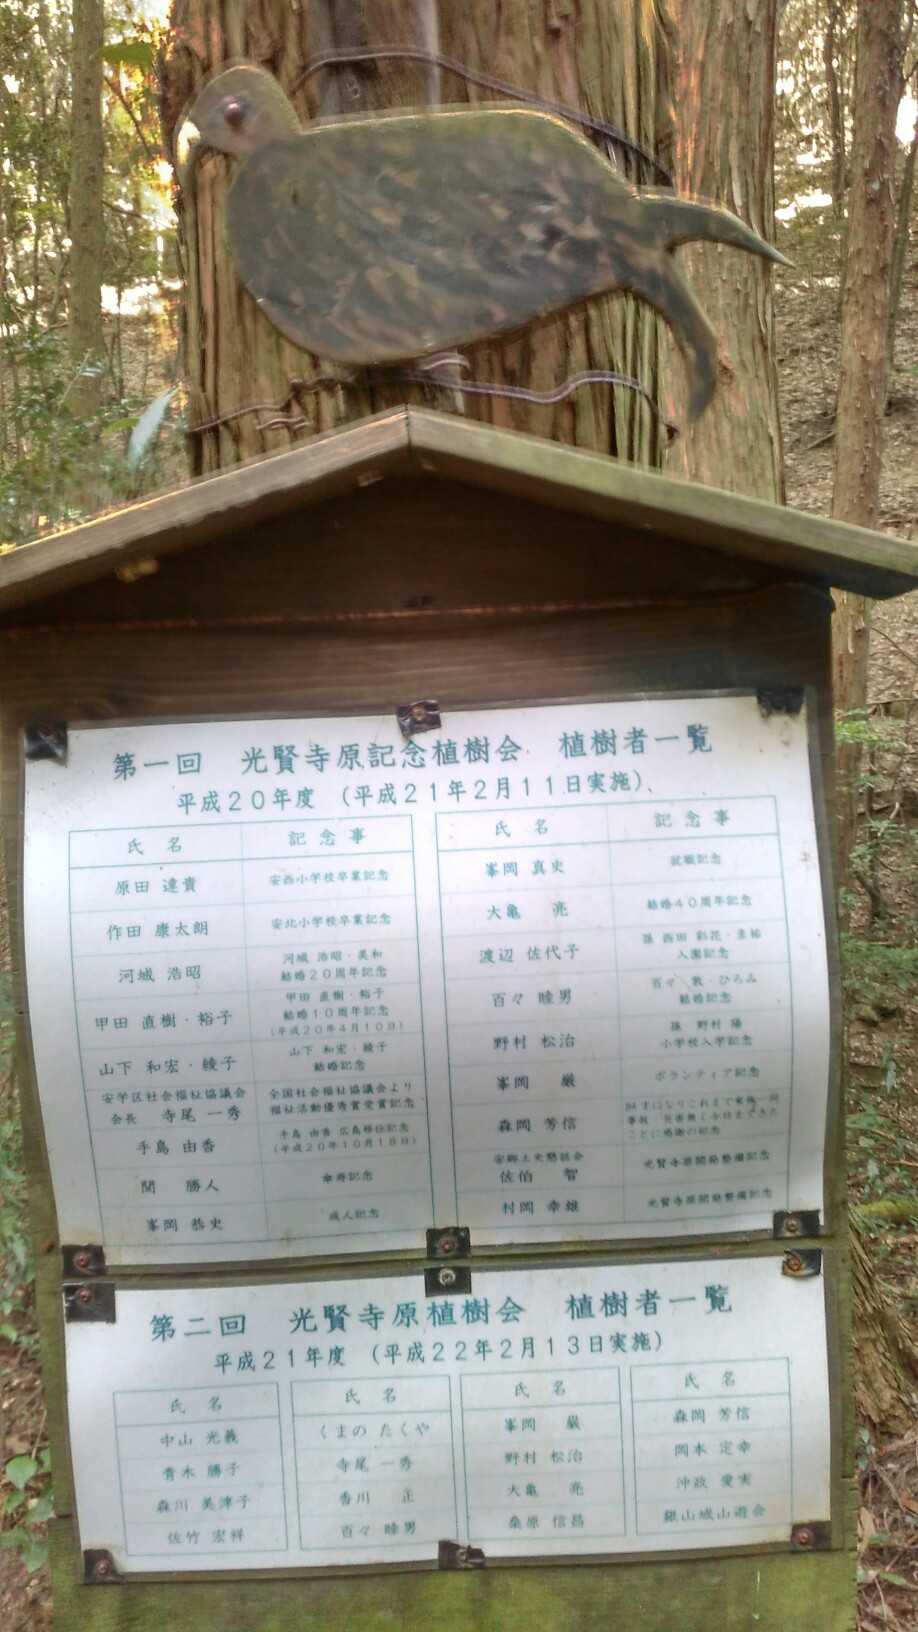 第一回　光賢寺原記念植樹会　植樹者一覧
平成20年度（平成21年2月11日実施）
氏 名　記 念 事
原田 達貴　安西小学校卒業記念
作田 康太朗　安北小学校卒業記念
河城 浩昭　河城 浩昭・美和
結婚20周年記念
甲田 直樹・裕子　甲田 直樹・裕子
結婚10周年記念
（平成20年4月10日）
山下 和宏・綾子　山下 和宏・綾子
結婚記念
安学区社会福祉協議会
会長　寺尾 一秀　全国社会福祉協議会より
福祉活動優秀賞受賞記念
手島 由香　手島 由香 広島移住記念
（平成20年10月18日）
関　勝人　傘寿記念
峯岡 恭史　成人記念
氏 名　記 念 事
峯岡 真史　就職記念
大亀　亮　結婚40周年記念
渡辺 佐代子　孫 西田 彩花・
入園記念
百々 睦男　百々 敦・ひろみ
結婚記念
野村 松治　孫 野村 陽
小学校入学記念
峯岡　巌　ボランティア記念
森岡 芳信　84才になりこれまで家族一同
事故・災害無く今日まできた
ことに感謝の記念
安郷土史懇話会
佐伯　智　光賢寺原開発整備記念
村岡 幸雄　光賢寺原開発整備記念
第二回　光賢寺原植樹会　植樹者一覧
平成21年度（平成22年2月13日実施）
氏 名
中山 光義
青木 勝子
森川 美津子
佐竹 宏祥
氏 名
くまの たくや
寺尾 一秀
香川　正
百々 睦男
氏 名
峯岡　巌
野村 松治
大亀　亮
桑原 信昌
氏 名
森岡 芳信
岡本 定幸
沖政 愛実
銀山城山遊会